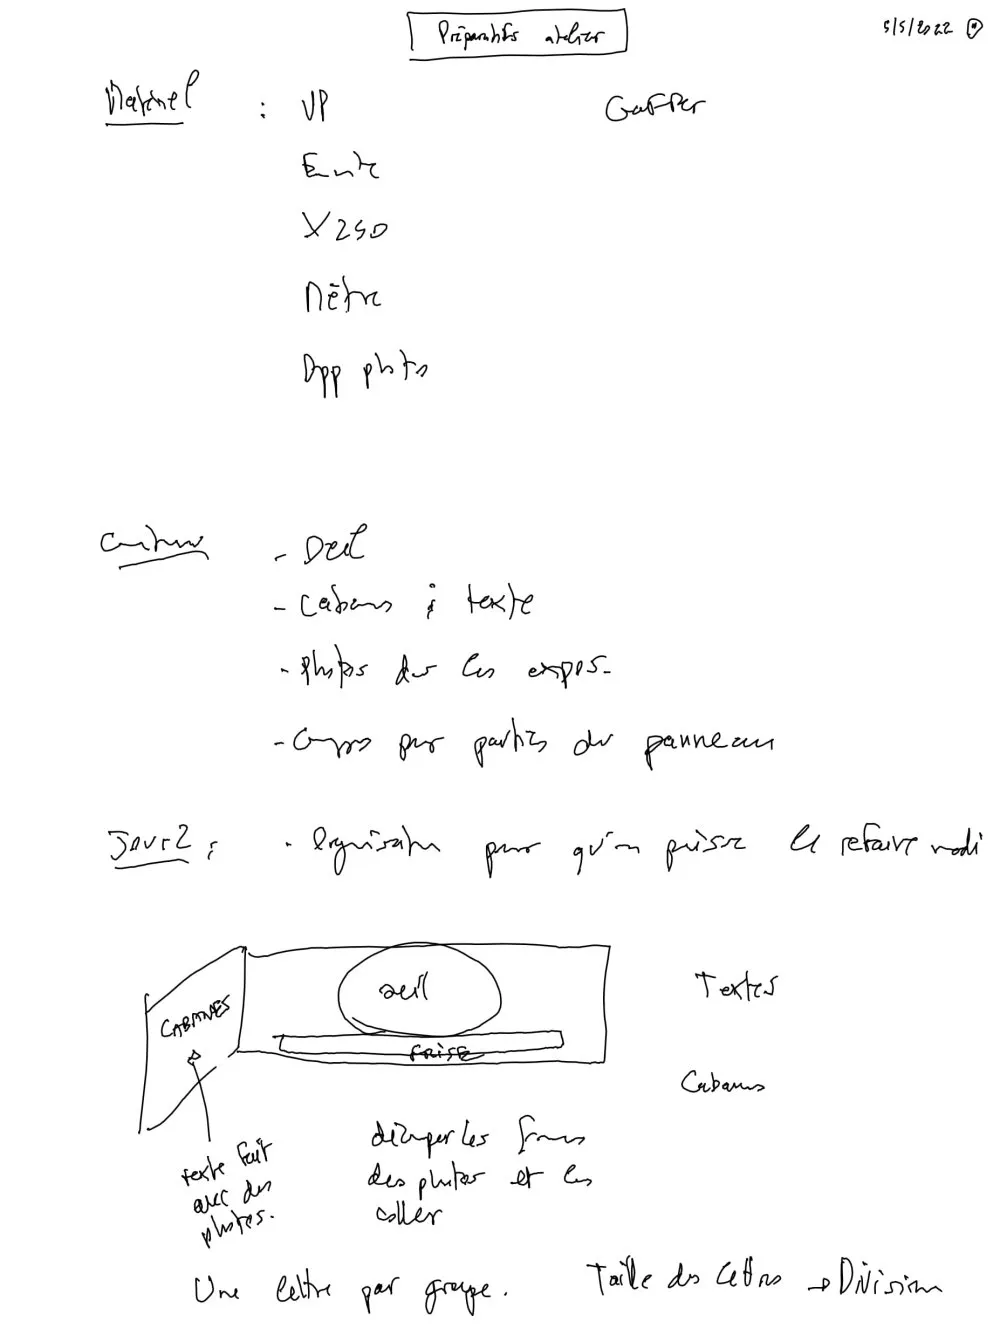 Préparatifs atelier
5/5/2022
Matériel : VP Gaffer
X250
Mètre
App photo
- Oeil
- Cabanes : texte
- Photos sur les expos.
- Groupes par parties du panneau
Jour 2 : . Organisation pour qu'on puisse le refaire
oeil
Textes
CABANES
FRISE
Cabanes
découper les formes
des photos et les
coller
texte fait
avec des
photos.
Une lettre par groupe. Taille des lettres → Division